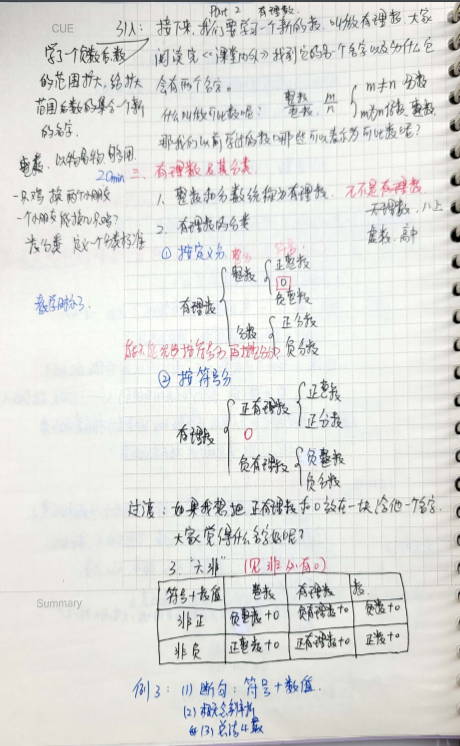 Part 2 有理数.
CUE
引入: 接下来,我们要学习一个新的数,叫做有理数,大家
阅读完《课堂内外》找到它的另一个名字以及为什么它
会有两个名字.
什么叫做可比数呢? 整数/整数 m/n { m≠n 分数
m为n倍数 整数
那我们以前学过的数,哪些可以表示为可比数呢?
学了一个负数后,数
的范围扩大,给扩大
范围后数的集合一个新
的名字.
20min 二、有理数及其分类
1. 整数和分数统称为有理数. π不是有理数
无理数,八上
虚数,高中
2. 有理数的分类
① 按定义分
有理数 { 整数 { 正整数
0
负整数
分数 { 正分数
负分数
教学时分了.
② 按符号分
有理数 { 正有理数 { 正整数
正分数
0
负有理数 { 负整数
负分数
过渡: 如果我想把正有理数和0放在一块,给他一个名字,
大家觉得什么名字好呢?
3. "六非" (见非必有0)
符号+数值 整数 有理数 数
非正 负整数+0 负有理数+0 负数+0
非负 正整数+0 正有理数+0 正数+0
Summary
例3: (1) 断句: 符号+数值.
(2) 概念辨析
(3) 总结